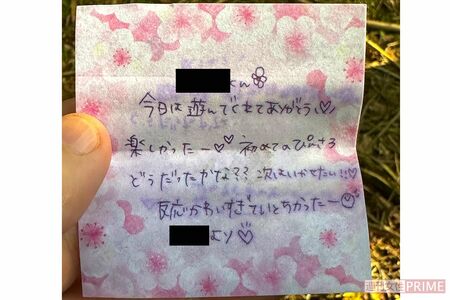 くん
今日は遊んでくれてありがとう♡
楽しかったー♡♡ 初めてのぴんさろ
どうだったかな?? 次はいかせたい!!♡
反応かわいすぎていとちかったー
より♡
週刊女性PRIME